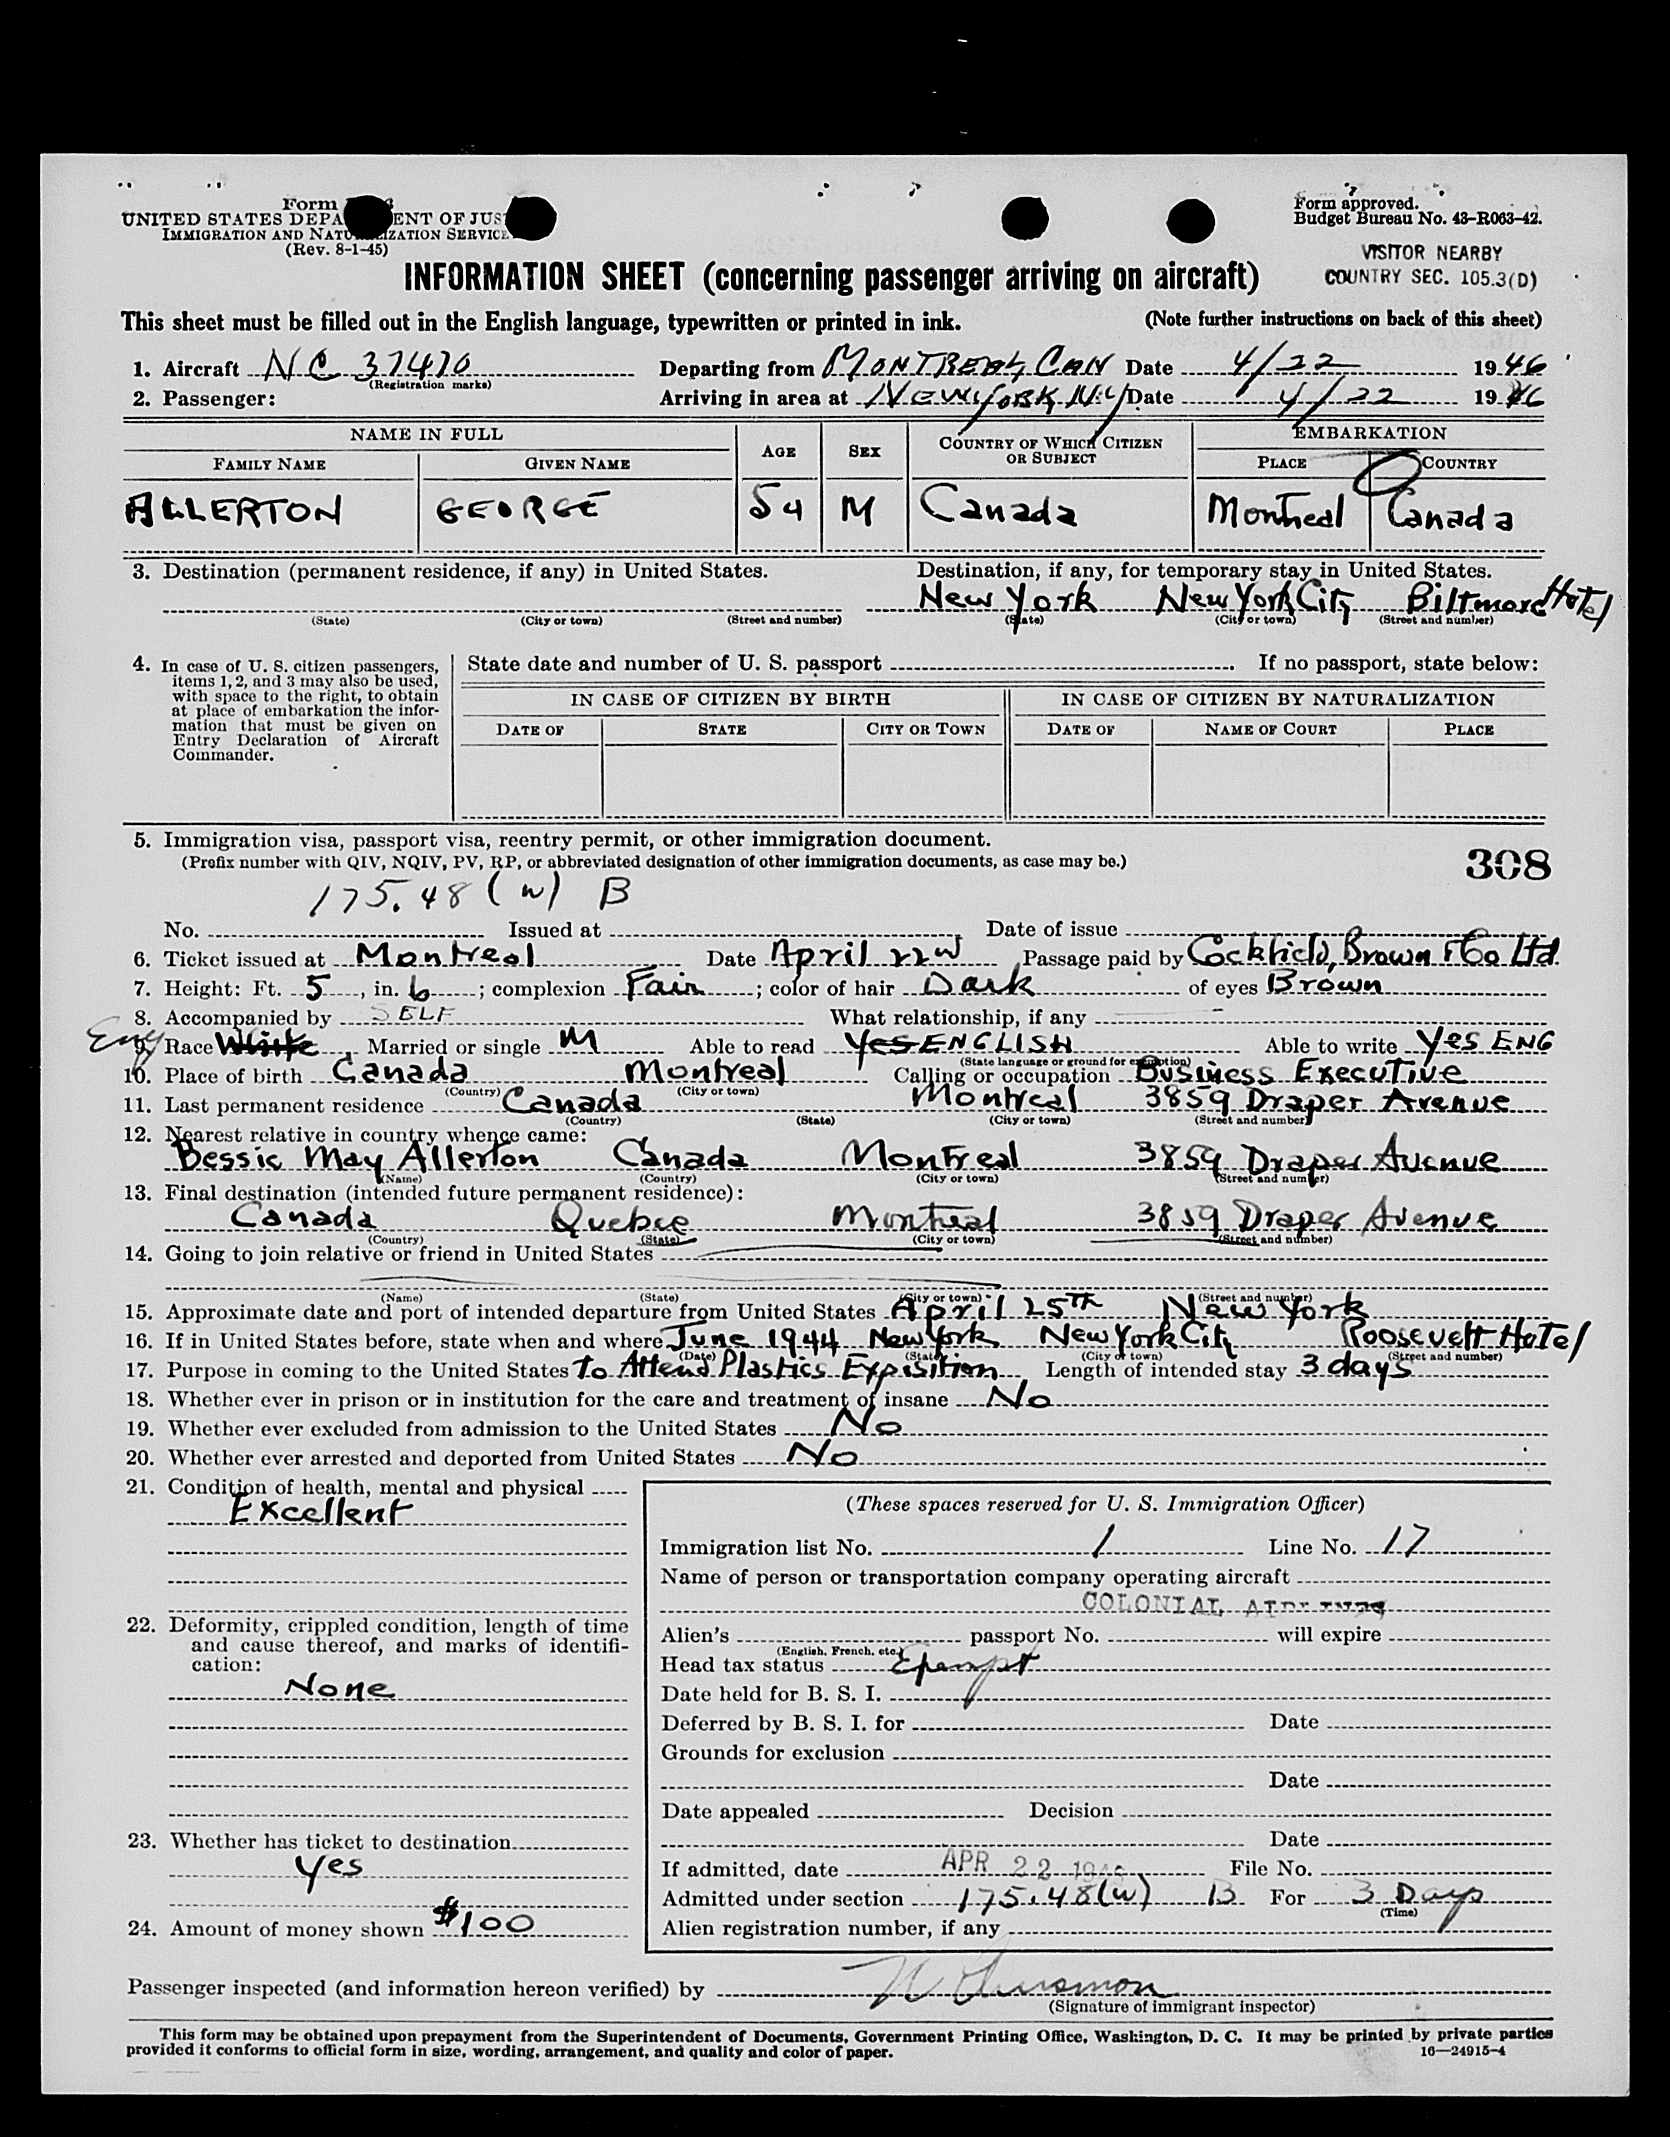 Form
UNITED STATES DEPA ENT OF JUS
IMMIGRATION AND NATU IZATION SERVICE
(Rev. 8-1-45)
Form approved.
Budget Bureau No. 43-R063-42.
VISITOR NEARBY
COUNTRY SEC. 105.3(D)
INFORMATION SHEET (concerning passenger arriving on aircraft)
This sheet must be filled out in the English language, typewritten or printed in ink. (Note further instructions on back of this sheet)
1. Aircraft NC 37470 Departing from MONTREAL, CAN Date 4/22 1946
(Registration marks)
2. Passenger: Arriving in area at NEW YORK, N.Y. Date 4/22 1946
NAME IN FULL AGE SEX COUNTRY OF WHICH CITIZEN OR SUBJECT EMBARKATION
FAMILY NAME GIVEN NAME PLACE COUNTRY
ALLERTON GEORGE 54 M Canada Montreal Canada
3. Destination (permanent residence, if any) in United States. Destination, if any, for temporary stay in United States.
New York New York City Biltmore Hotel
(State) (City or town) (Street and number) (State) (City or town) (Street and number)
4. In case of U. S. citizen passengers, items 1, 2, and 3 may also be used, with space to the right, to obtain at place of embarkation the information that must be given on Entry Declaration of Aircraft Commander.
State date and number of U. S. passport . If no passport, state below:
IN CASE OF CITIZEN BY BIRTH IN CASE OF CITIZEN BY NATURALIZATION
DATE OF STATE CITY OR TOWN DATE OF NAME OF COURT PLACE
5. Immigration visa, passport visa, reentry permit, or other immigration document.
(Prefix number with QIV, NQIV, PV, RP, or abbreviated designation of other immigration documents, as case may be.)
308
175.48 (w) B
No. Issued at Date of issue
6. Ticket issued at Montreal Date April 22nd Passage paid by Cockfield, Brown & Co Ltd.
7. Height: Ft. 5, in. 6; complexion Fair; color of hair Dark of eyes Brown
8. Accompanied by SELF What relationship, if any
Eng
9. Race White Married or single M Able to read Yes ENGLISH Able to write Yes ENG
(State language or ground for exemption)
10. Place of birth Canada Montreal Calling or occupation Business Executive
(Country) (City or town)
11. Last permanent residence Canada Montreal 3859 Draper Avenue
(Country) (State) (City or town) (Street and number)
12. Nearest relative in country whence came:
Bessie May Allerton Canada Montreal 3859 Draper Avenue
(Name) (Country) (City or town) (Street and number)
13. Final destination (intended future permanent residence):
Canada Quebec Montreal 3859 Draper Avenue
(Country) (State) (City or town) (Street and number)
14. Going to join relative or friend in United States
(Name) (State) (City or town) (Street and number)
15. Approximate date and port of intended departure from United States April 25TH New York
16. If in United States before, state when and where June 1944 New York New York City Roosevelt Hotel
(Date) (State) (City or town) (Street and number)
17. Purpose in coming to the United States To Attend Plastics Exposition Length of intended stay 3 days
18. Whether ever in prison or in institution for the care and treatment of insane No
19. Whether ever excluded from admission to the United States No
20. Whether ever arrested and deported from United States No
21. Condition of health, mental and physical
Excellent
22. Deformity, crippled condition, length of time and cause thereof, and marks of identification:
None
23. Whether has ticket to destination
Yes
24. Amount of money shown $100
(These spaces reserved for U. S. Immigration Officer)
Immigration list No. 1 Line No. 17
Name of person or transportation company operating aircraft
COLONIAL
Alien's passport No. will expire
(English, French, etc.)
Head tax status Exempt
Date held for B. S. I.
Deferred by B. S. I. for Date
Grounds for exclusion
Date
Date appealed Decision
Date
If admitted, date APR 22 1946 File No.
Admitted under section 175.48(w) B For 3 Days
(Time)
Alien registration number, if any
Passenger inspected (and information hereon verified) by
(Signature of immigrant inspector)
This form may be obtained upon prepayment from the Superintendent of Documents, Government Printing Office, Washington, D. C. It may be printed by private parties
provided it conforms to official form in size, wording, arrangement, and quality and color of paper. 16—24915-4